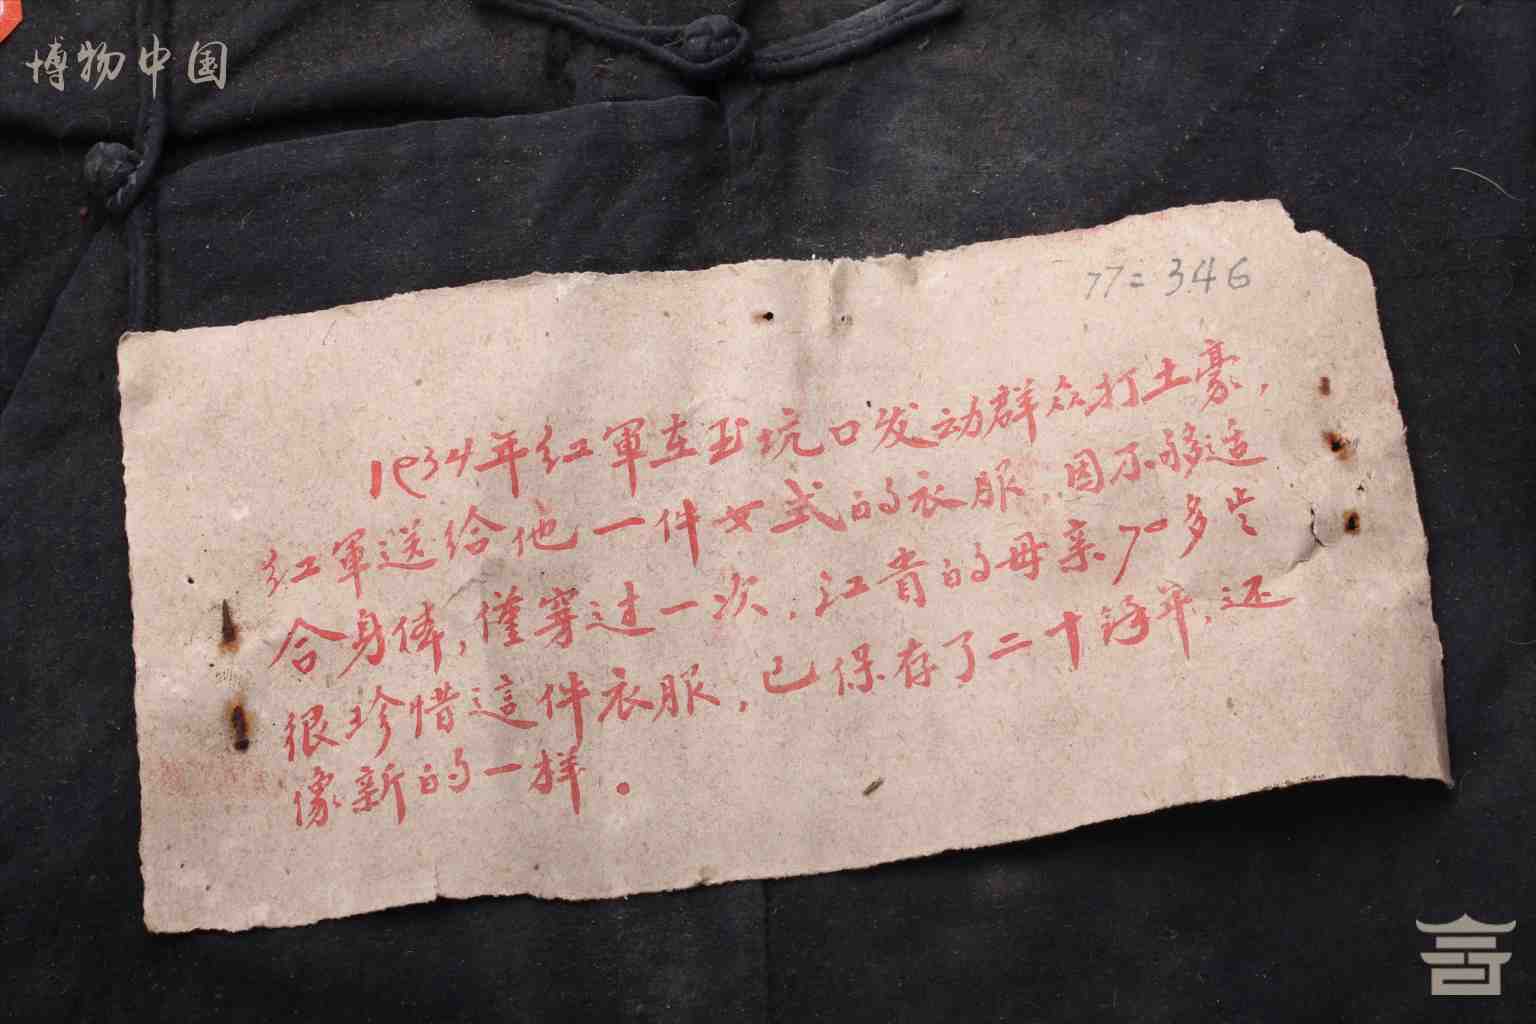 博物中国
77=346
1934年红軍在玉坑口发动群众打土豪,
红軍送给他一件女式的衣服,因不够适
合身体,僅穿过一次,江貴的母亲70多岁
很珍惜這件衣服,已保存了二十幾年,还
像新的一样。